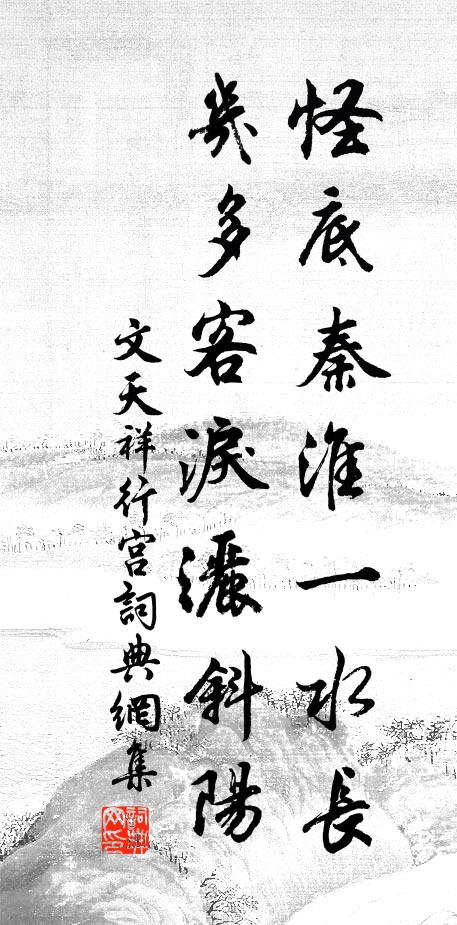 怪底秦淮一水長
幾多客淚灑斜陽
文天祥行宮詞典網集